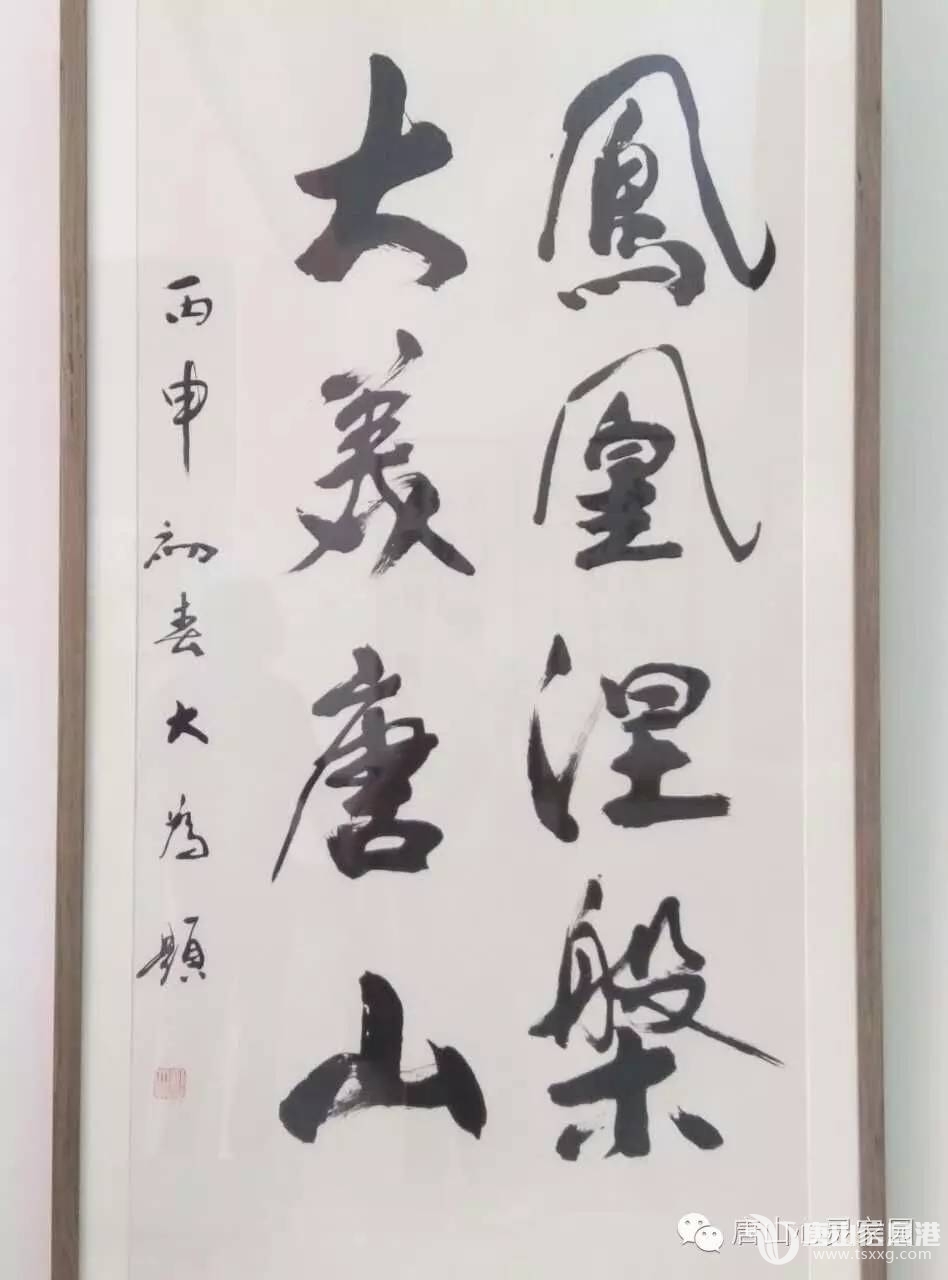 鳳凰涅槃
大美唐山
丙申初春大為題
www.tsxxg.com